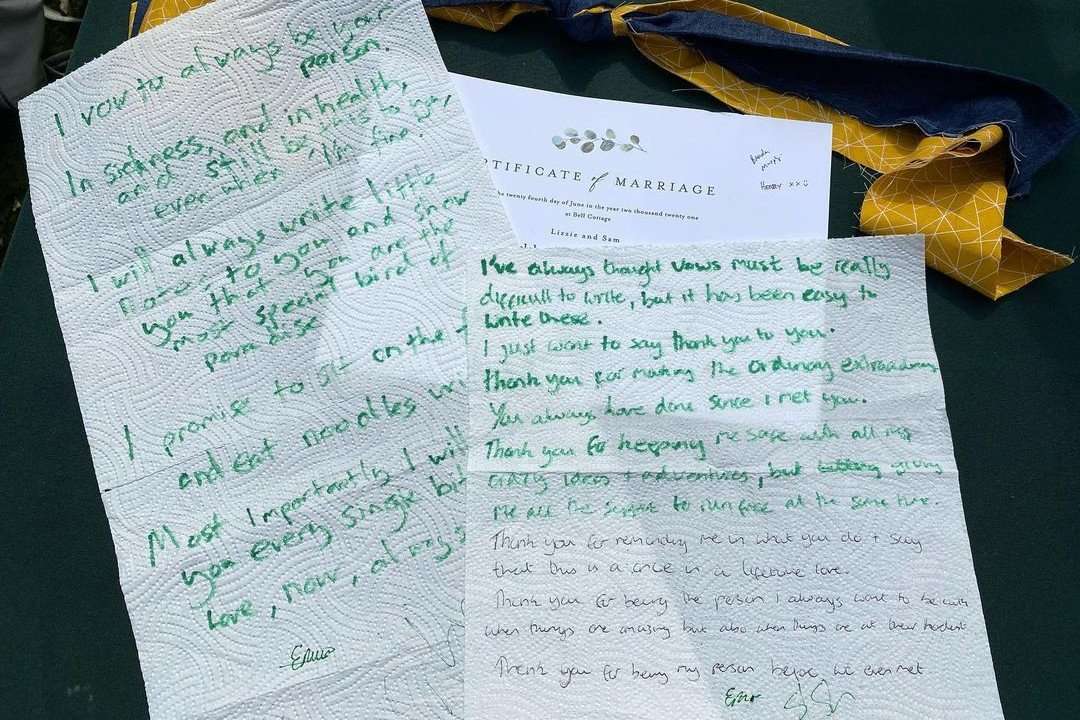 I vow to always be your
person.
In sickness, and in health,
and still be
even when
find
I will always write little
to you and show
you that you are the
most special bird of
paradise
I promise to sit on the
and eat noodles
Most importantly I will
you every single bit
love, now, always
CERTIFICATE of MARRIAGE
the twenty fourth day of June in the year two thousand twenty one
at Bell Cottage
Lizzie and Sam
I've always thought vows must be really
difficult to write, but it has been easy to
write these.
I just want to say thank you to you.
Thank you for making the ordinary extraordinary
You always have done since I met you.
Thank you for keeping me safe with all my
crazy ideas + adventures, but giving
me all the support to run free at the same time.
Thank you for reminding me in what you do + say
that this is a once in a lifetime love.
Thank you for being the person I always want to be with
when things are amazing but also when things are at their hardest
Thank you for being my person before we even met